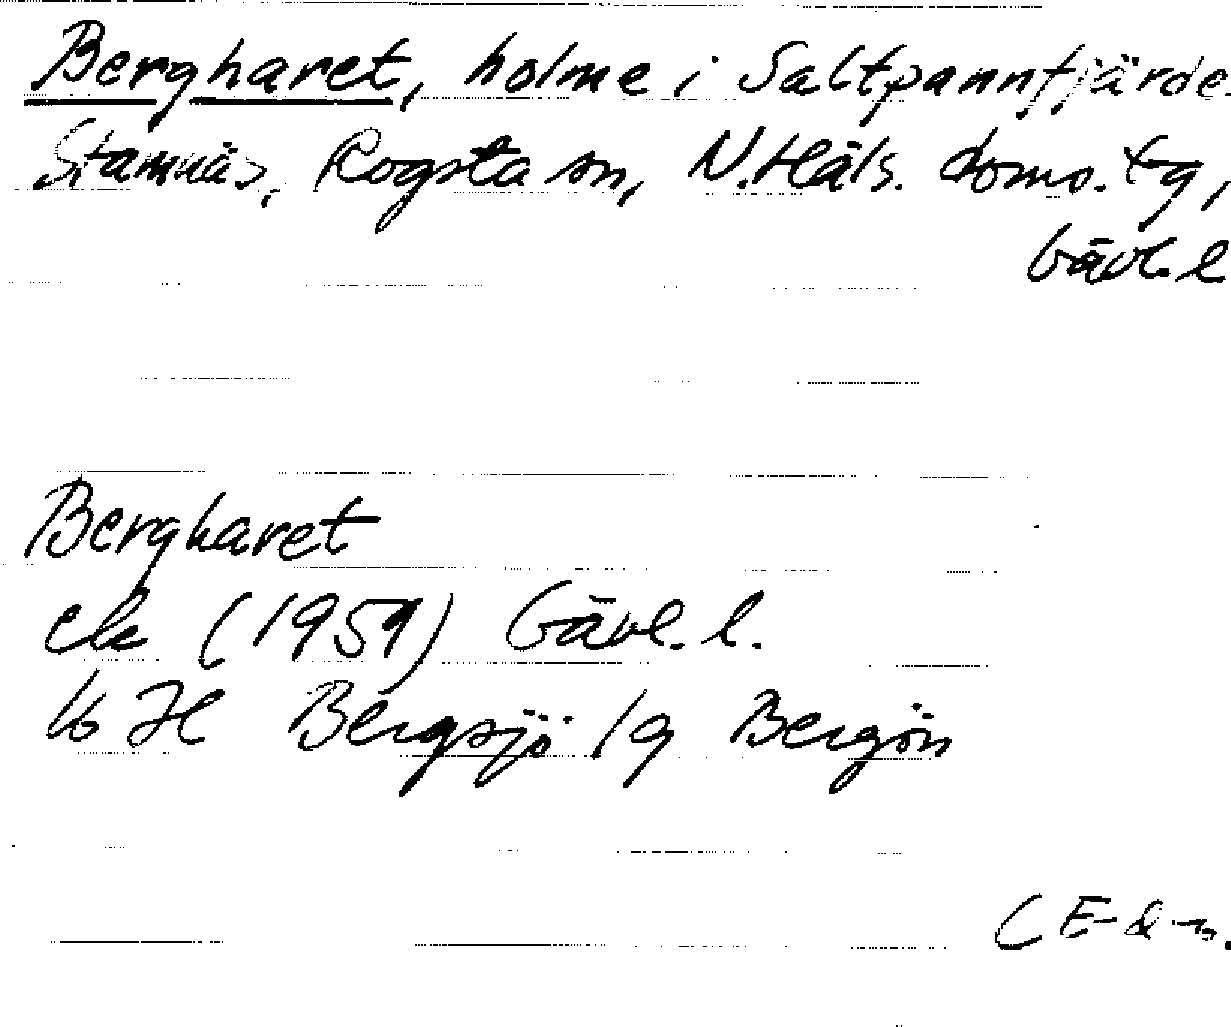 Bergharet, holme i Saltpannfjärde
Stamnäs, Rogsta sn, N. Häls. doms. tg,
Gävl. l
Bergharet
ek (1959) Gävl. l.
16 H Bergsjö /g Bergön